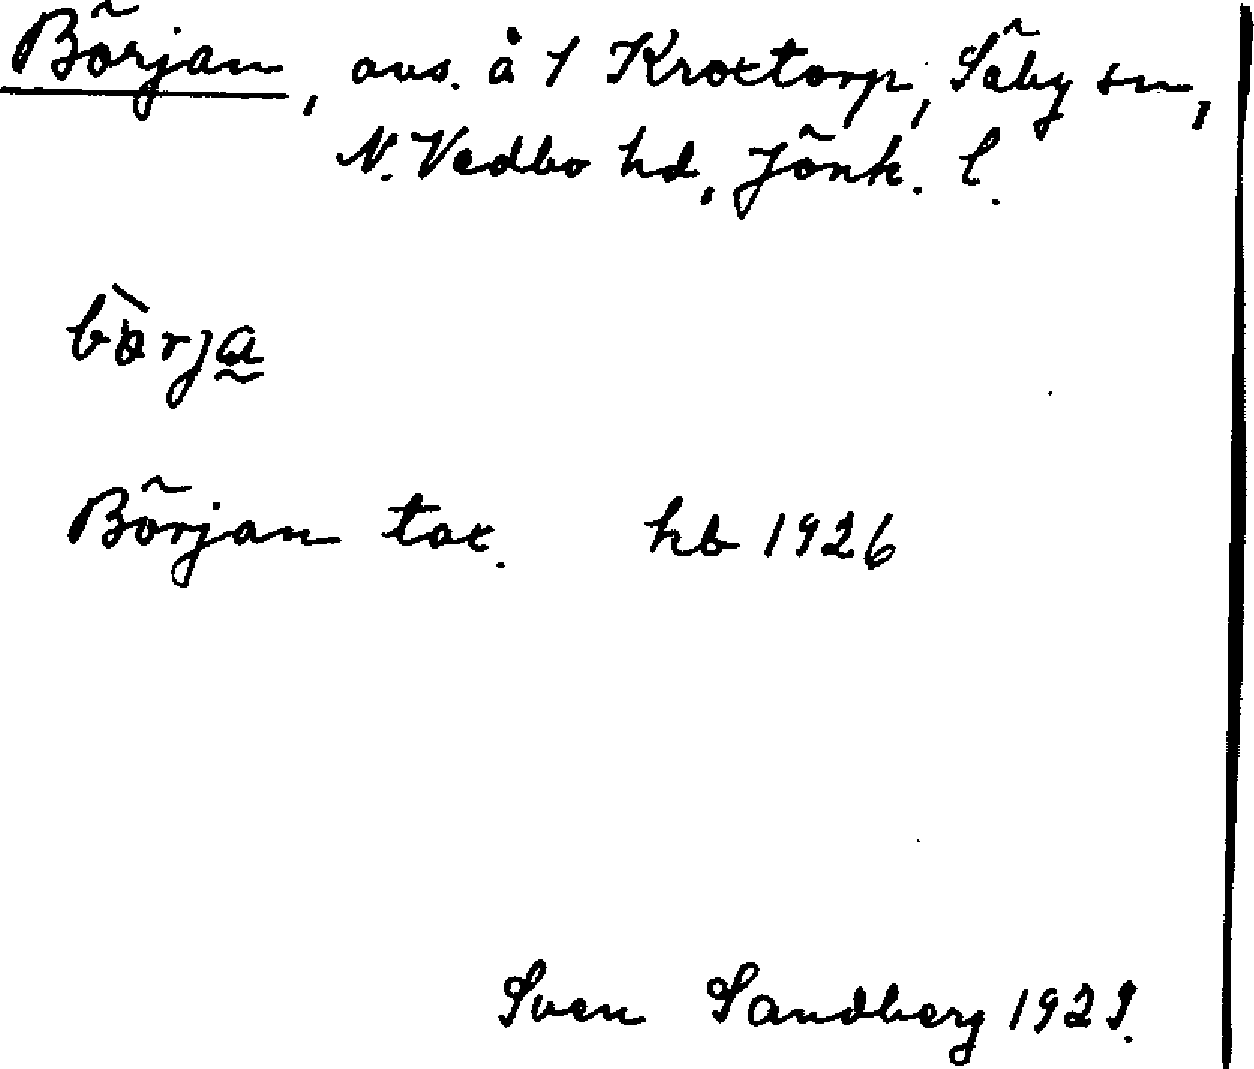 Början, avs. å 1 Kroxtorp, Säby sn,
N. Vedbo hd, Jönk. l.
bòrja
Början tax. hb 1926
Sven Sandberg 1929.